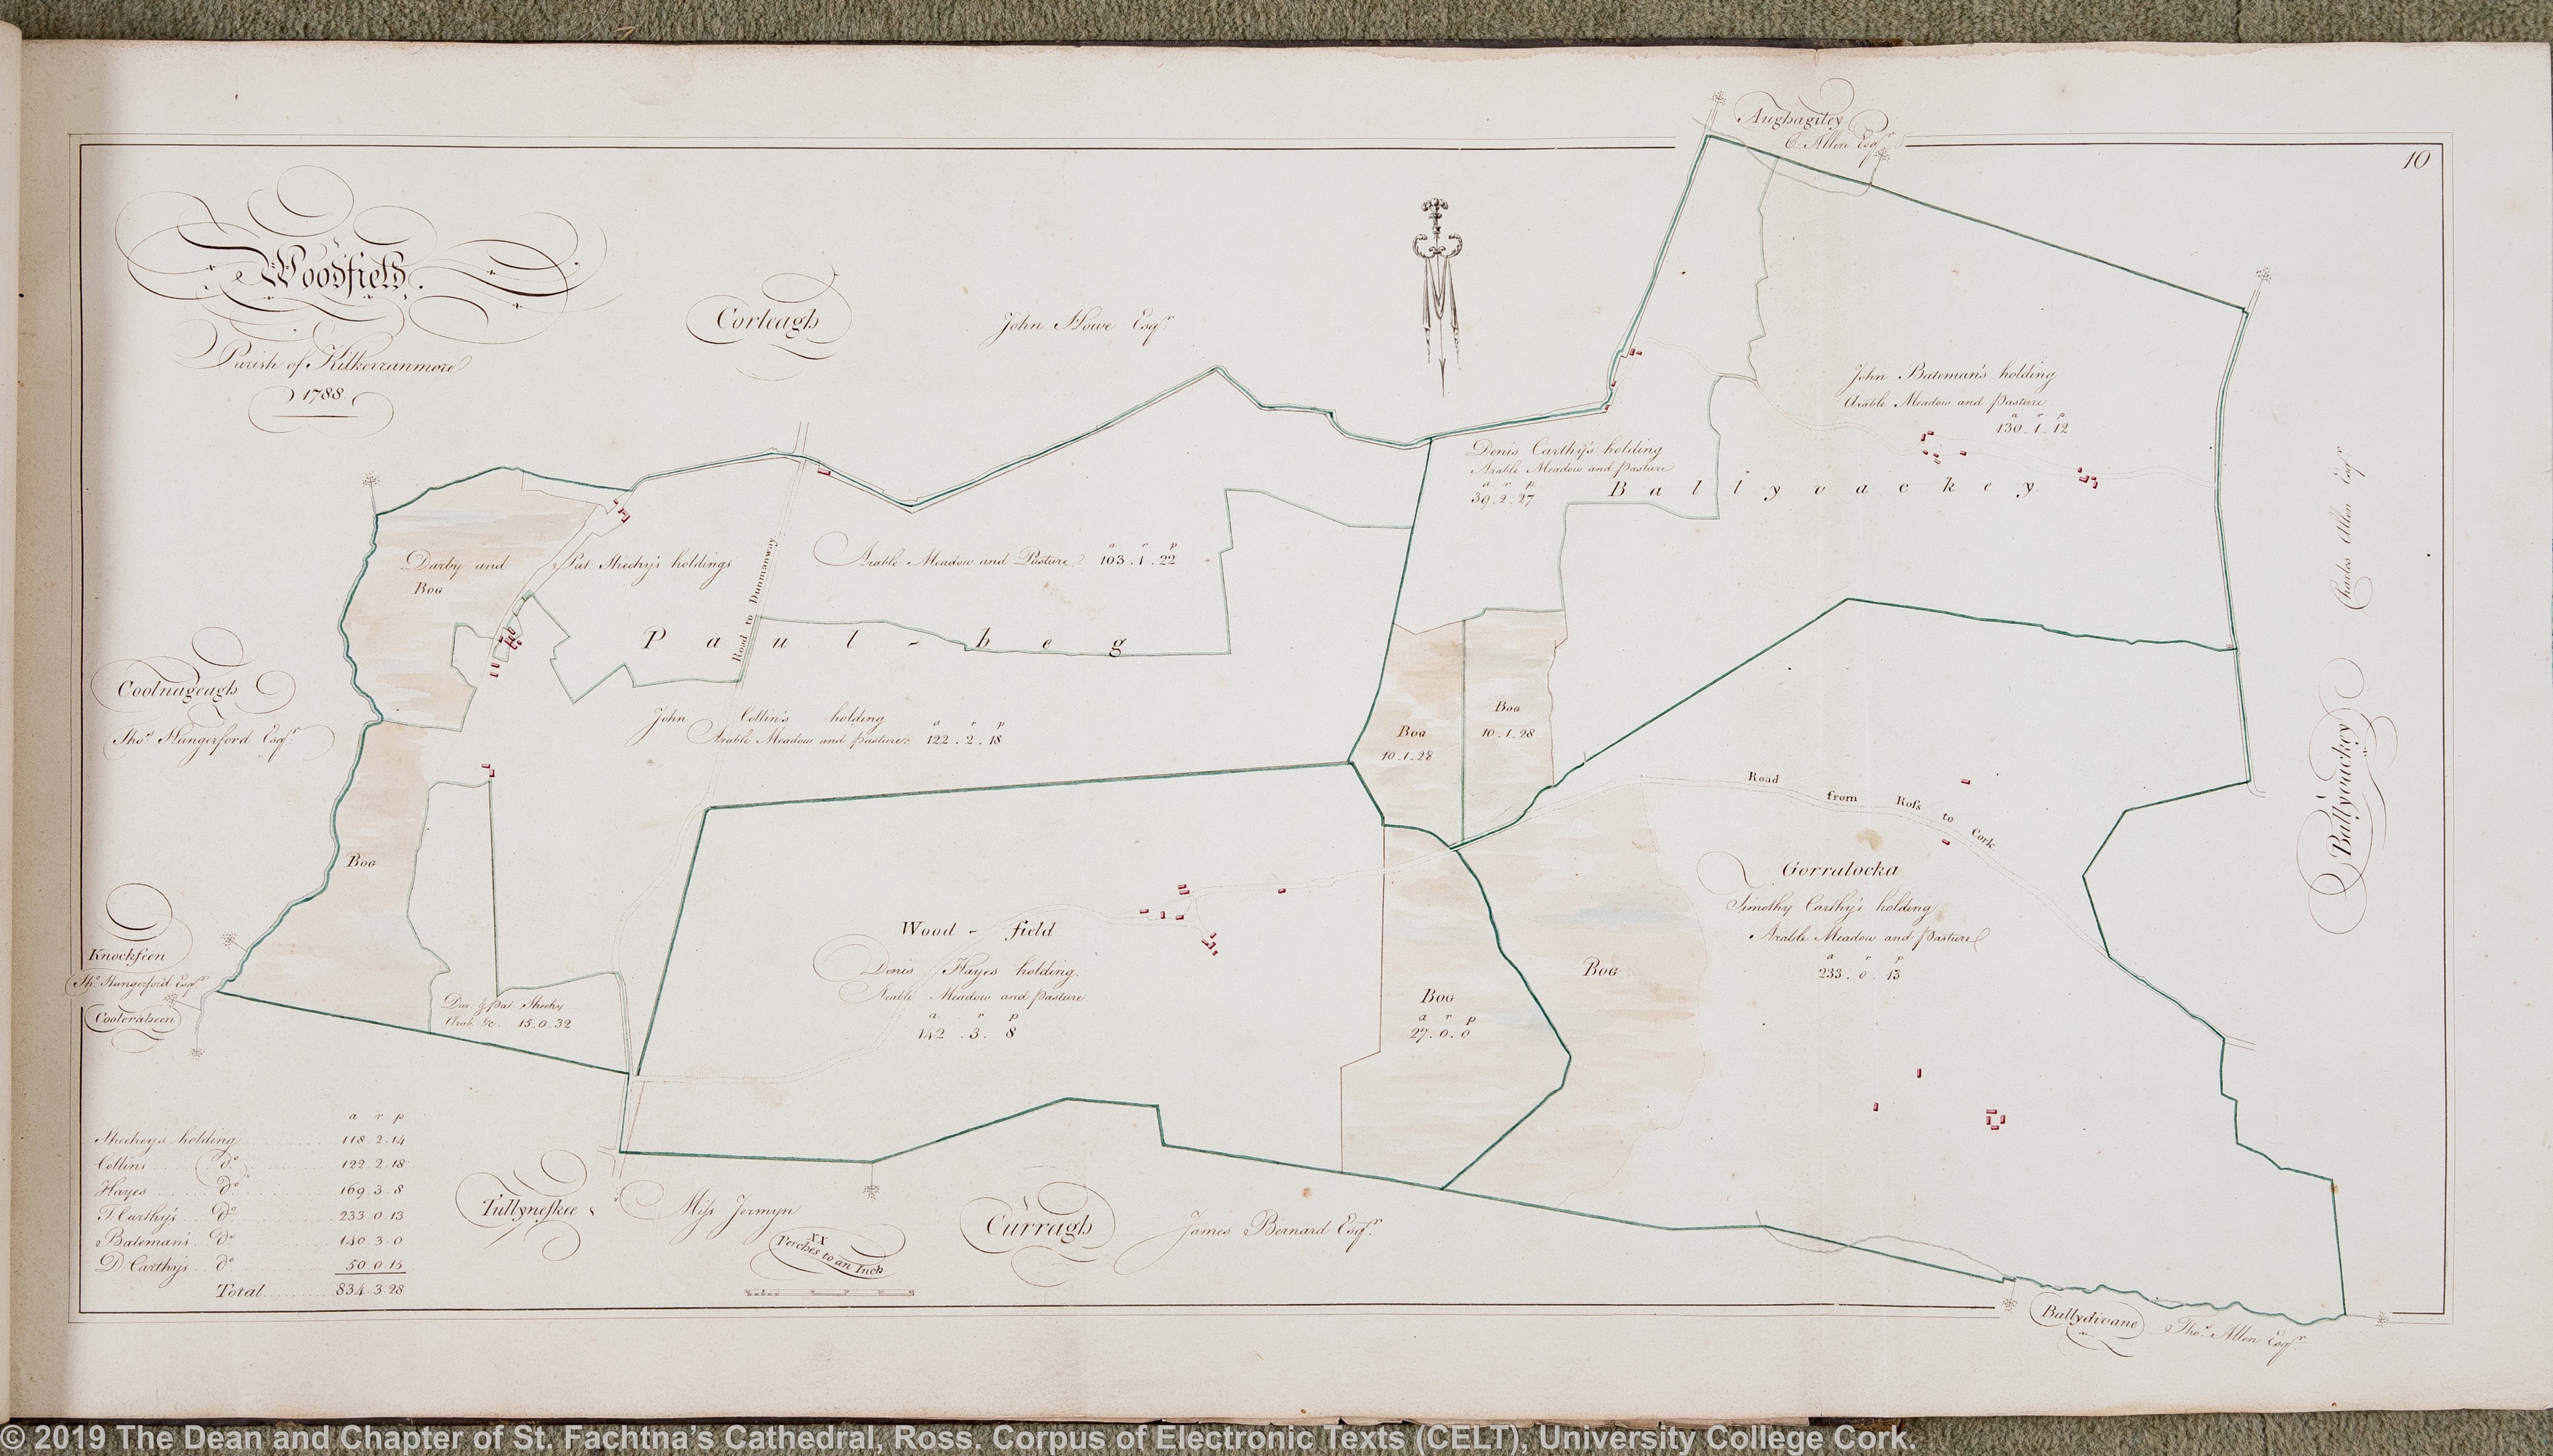 10
Woodfield.
Parish of Kilkerranmore
1788.
Corleagh
John Howe Esqr.
Aughagiley
C. Allen Esqr.
John Bateman's holding
Arable Meadow and Pasture
a r p
130.1.12
Denis Carthy's holding
Arable Meadow and Pasture
a. r. p.
39.2.27
Ballyvackey
Charles Allen Esqr.
Ballyvackey
Darby and Pat Sheehy's holdings
Bog
Arable Meadow and Pasture
a r p
103.1.22
Road to Dunmanway
Paul-beg
Coolnageagh
Thos. Hungerford Esqr.
John Collin's holding
Arable Meadow and Pasture
a r p
122.2.18
Bog
10.1.28
Bog
10.1.28
Road from Ross to Cork
Bog
Gorralocka
Timothy Carthy's holding
Arable Meadow and Pasture
a r p
233.0.13
Bog
Wood-field
Denis Hayes holding.
Arable Meadow and Pasture
a r p
142.3.8
Bog
a r p
27.0.0
Knockfeen
Th. Hungerford Esqr.
Cooleraheen
Dar. & Pat. Sheehy
Arab. &c. 15.0.32
a r p
Sheehey's holding 118.2.14
Collins do. 122.2.18
Hayes do. 169.3.8
T. Carthy's do. 233.0.13
Bateman's do. 140.3.0
D. Carthy's do. 50.0.15
Total 834.3.28
Tullyneskee
Miss Jermyn
XX
Perches to an Inch
Curragh
James Bernard Esqr.
Ballydivane
Thos. Allen Esqr.
© 2019 The Dean and Chapter of St. Fachtna's Cathedral, Ross. Corpus of Electronic Texts (CELT), University College Cork.